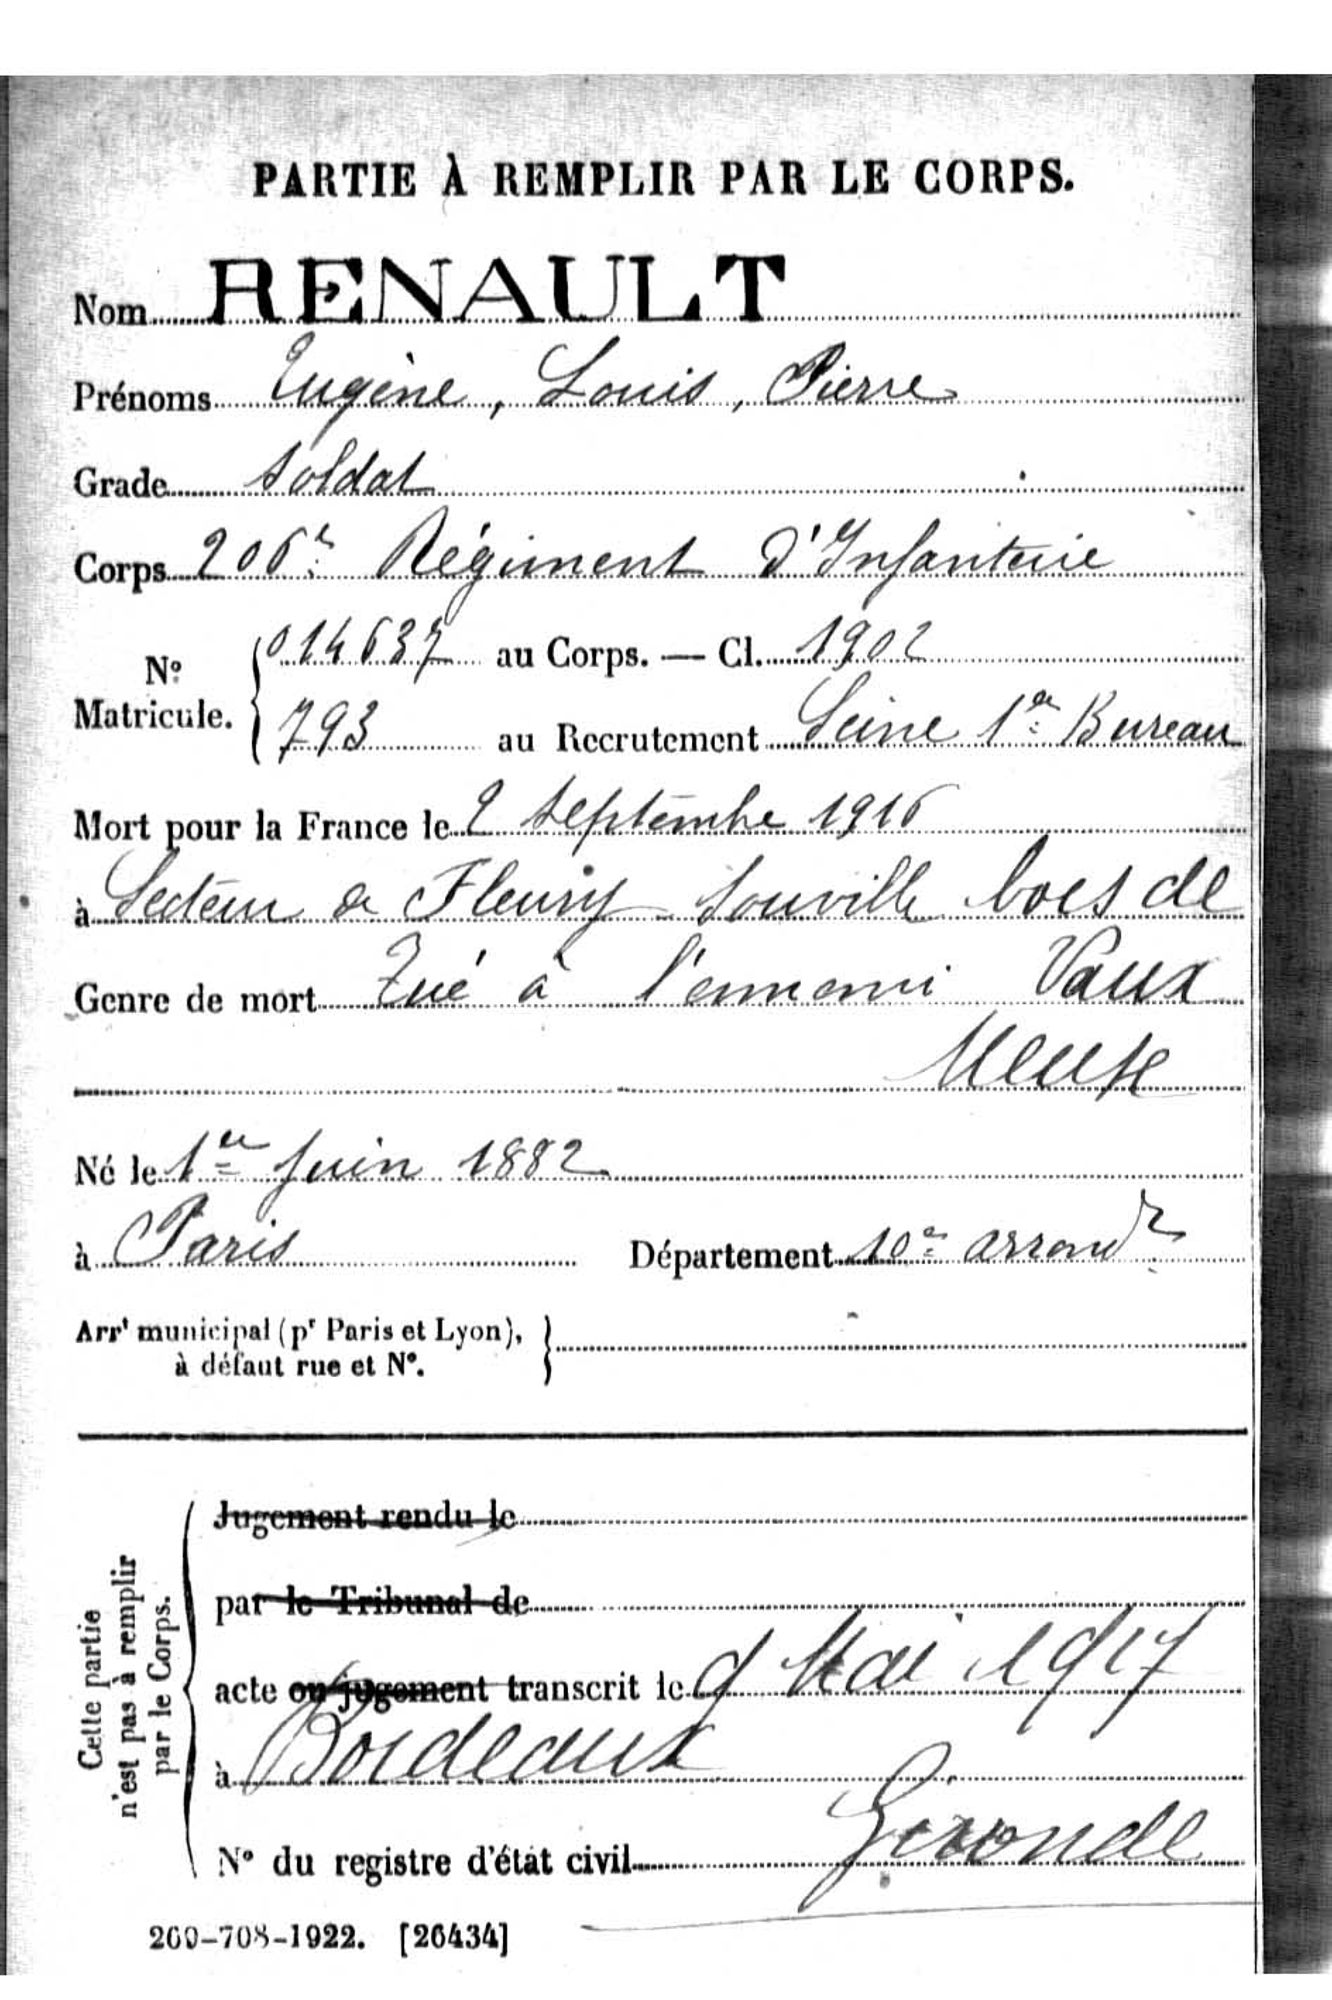 PARTIE À REMPLIR PAR LE CORPS.
Nom RENAULT
Prénoms Eugène, Louis, Pierre
Grade soldat
Corps 206e Régiment d'Infanterie
N° Matricule. { 014637 au Corps. — Cl. 1902
793 au Recrutement Seine 1er Bureau
Mort pour la France le 2 septembre 1916
à Secteur de Fleury Souville bois de
Genre de mort Tué à l'ennemi Vaux
Meuse
Né le 1er Juin 1882
à Paris Département 10e arrondt
Arrt municipal (pr Paris et Lyon),
à défaut rue et N°.
Cette partie
n'est pas à remplir
par le Corps.
Jugement rendu le
par le Tribunal de
acte ou jugement transcrit le 9 Mai 1917
à Bordeaux
Gironde
N° du registre d'état civil
260-708-1922. [26434]